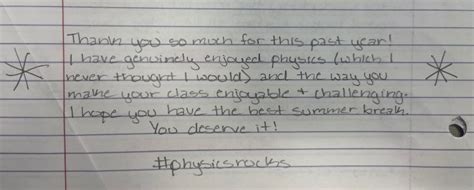 Thank you so much for this past year!
I have genuinely enjoyed physics (which I
never thought I would) and the way you
make your class enjoyable + challenging.
I hope you have the best summer break.
You deserve it!
#physicsrocks